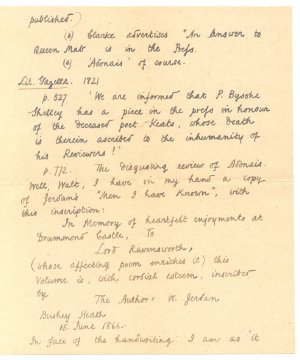 published)
(d) Clarke advertises "An Answer to
Queen Mab is in the Press.
(e) Adonais' of course.
Lit. Gazette. 1821
p. 527. 'We are informed that P. Bysshe
Shelley has a piece in the press in honour
of the deceased poet Keats, whose death
is therein ascribed to the inhumanity of
his Reviewers!'
p. 772. The disgusting review of Adonais.
Well, Walt, I have in my hand a copy
of Jerdan's "Men I have Known", with
this inscription:
In Memory of heartfelt enjoyments at
Drummond Castle, To
Lord Ravensworth,
(whose affecting poem enriches it) this
Volume is, with cordial esteem, inscribed
by
The Author: W. Jerdan
Bushey Heath
18. June 1866.
In face of the handwriting I am as it